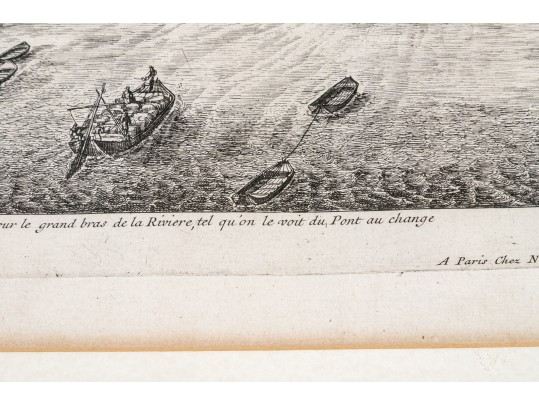 sur le grand bras de la Riviere, tel qu'on le voit du Pont au change
A Paris Chez N